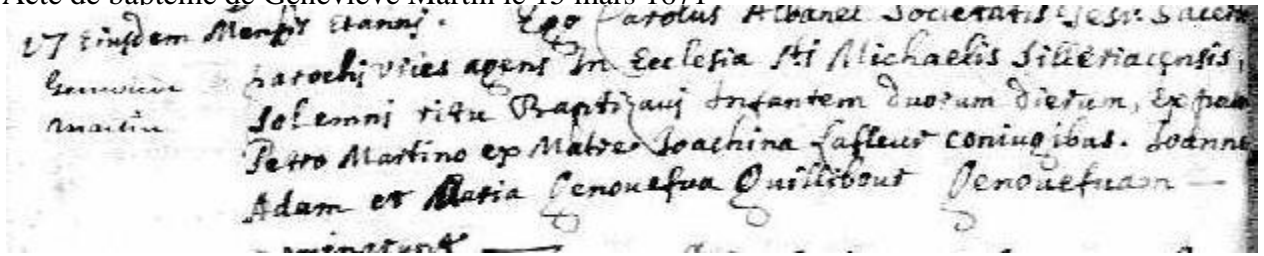 Acte de baptême de Geneviève Martin le 15 mars 1671
17 Eiusdem Mensis et anni. Ego Carolus Albanel Societatis Jesu Sacer
Genevieve
Martin
parochi vices agens In Ecclesia Sti Michaelis Silleriacensis,
Solemni ritu Baptizavi Infantem duorum dierum, Ex patre
Petro Martino ex Matre Joachina Lafleur coniugibus. Joanne
Adam et Maria Genouefua Quillibout Genouefuam —
nominarunt —